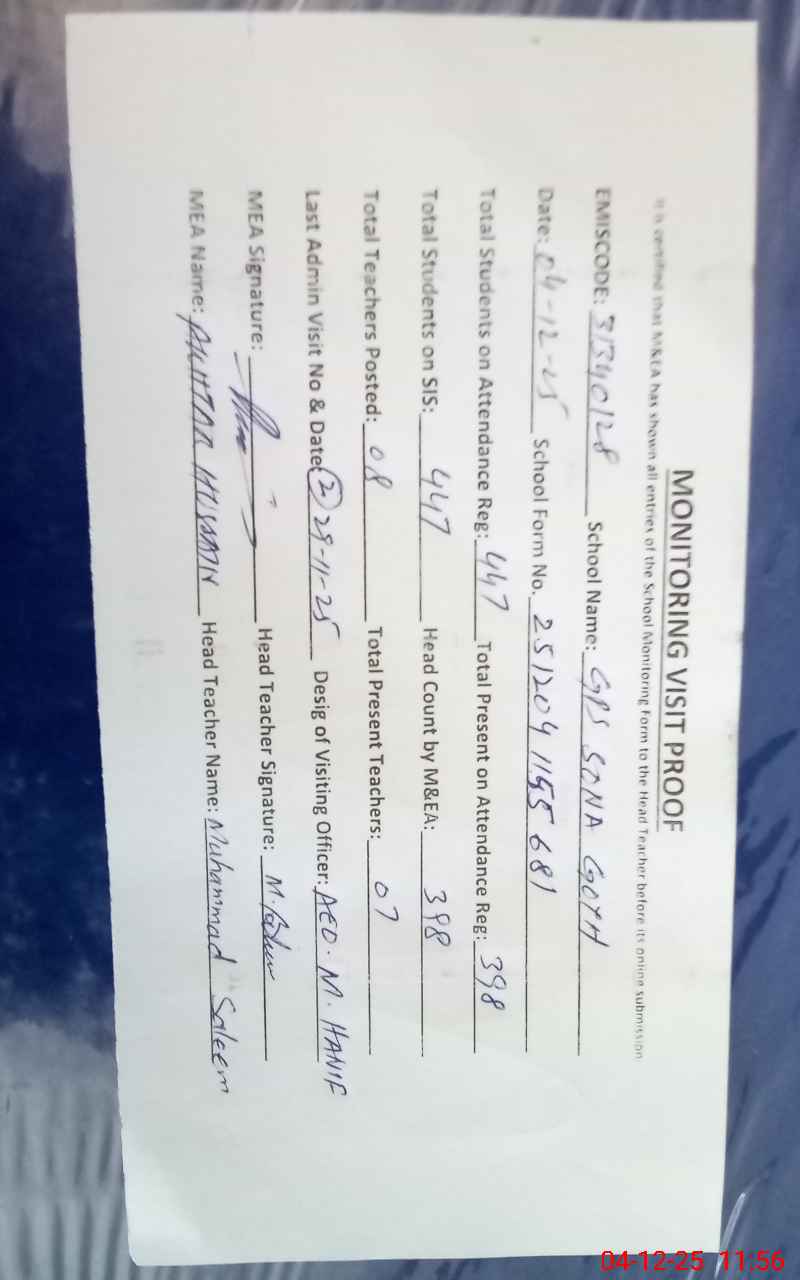 MONITORING VISIT PROOF
It is certified that M&EA has shown all entries of the School Monitoring Form to the Head Teacher before its online submission
EMISCODE: 31340128 School Name: GPS SONA GOTH
Date: 04-12-25 School Form No. 2512041155681
Total Students on Attendance Reg: 447 Total Present on Attendance Reg: 398
Total Students on SIS: 447 Head Count by M&EA: 398
Total Teachers Posted: 08 Total Present Teachers: 07
Last Admin Visit No & Date: (2) 29-11-25 Desig of Visiting Officer: AEO. M. HANIF
MEA Signature: Head Teacher Signature: M.
MEA Name: AKHTAR HUSSAIN Head Teacher Name: Muhammad Saleem
04-12-25 11:56